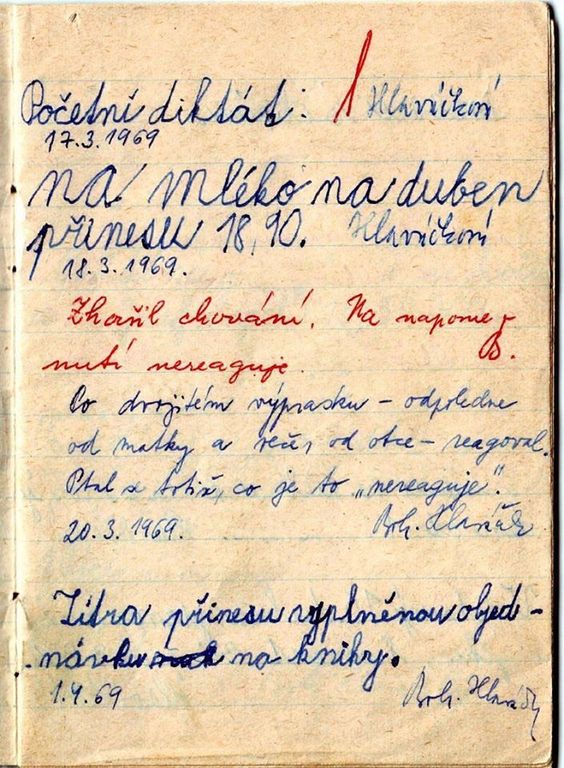 Početní diktát: 1 Hlaváčková
17.3.1969
na mléko na duben
přinesu 18,90. Hlaváčková
18.3.1969.
Zhoršil chování. Na napome-
nutí nereaguje. B.
Po dvojitém výprasku – odpoledne
od matky a večer od otce – reagoval.
Ptal se totiž, co je to „nereaguje“.
20.3.1969. Boh. Hlaváček
Zítra přinesu vyplněnou objed-
návku na knihy.
1.4.69 Boh. Hlaváček